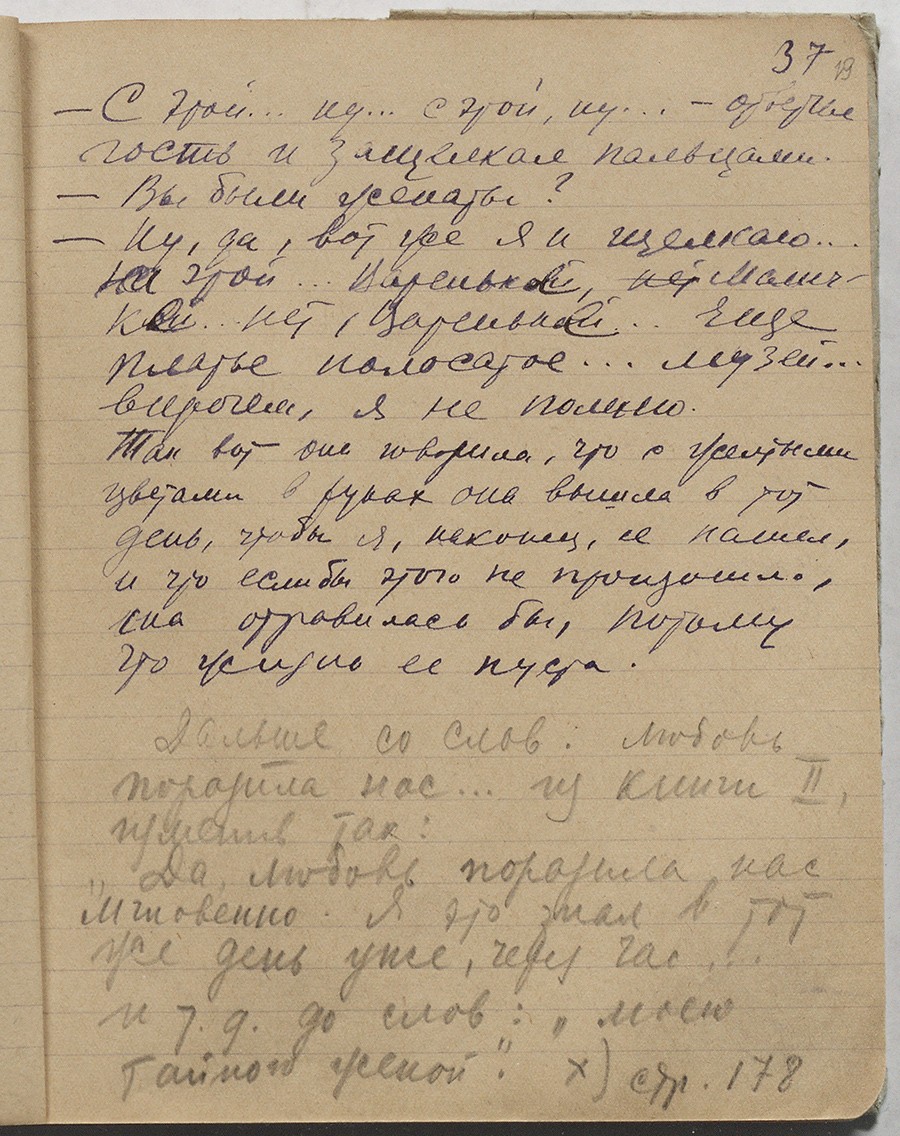 37
19
— С этой... ну... с этой, ну... — ответил
гость и защелкал пальцами.
— Вы были женаты?
— Ну, да, вот же я и щелкаю...
На этой... Вареньке, нет Манич-
ке.. нет, Вареньке... Еще
платье полосатое... музей...
впрочем, я не помню.
Так вот она говорила, что с желтыми
цветами в руках она вышла в тот
день, чтобы я, наконец, ее нашел,
и что если бы этого не произошло,
она отравилась бы, потому
что жизнь ее пуста.
Дальше со слов: любовь
поразила нас... из книги II,
изменив так:
„Да, любовь поразила нас
мгновенно. Я это знал в тот
же день уже, через час,...
и т. д. до слов: „моею
тайною женой". х) стр. 178